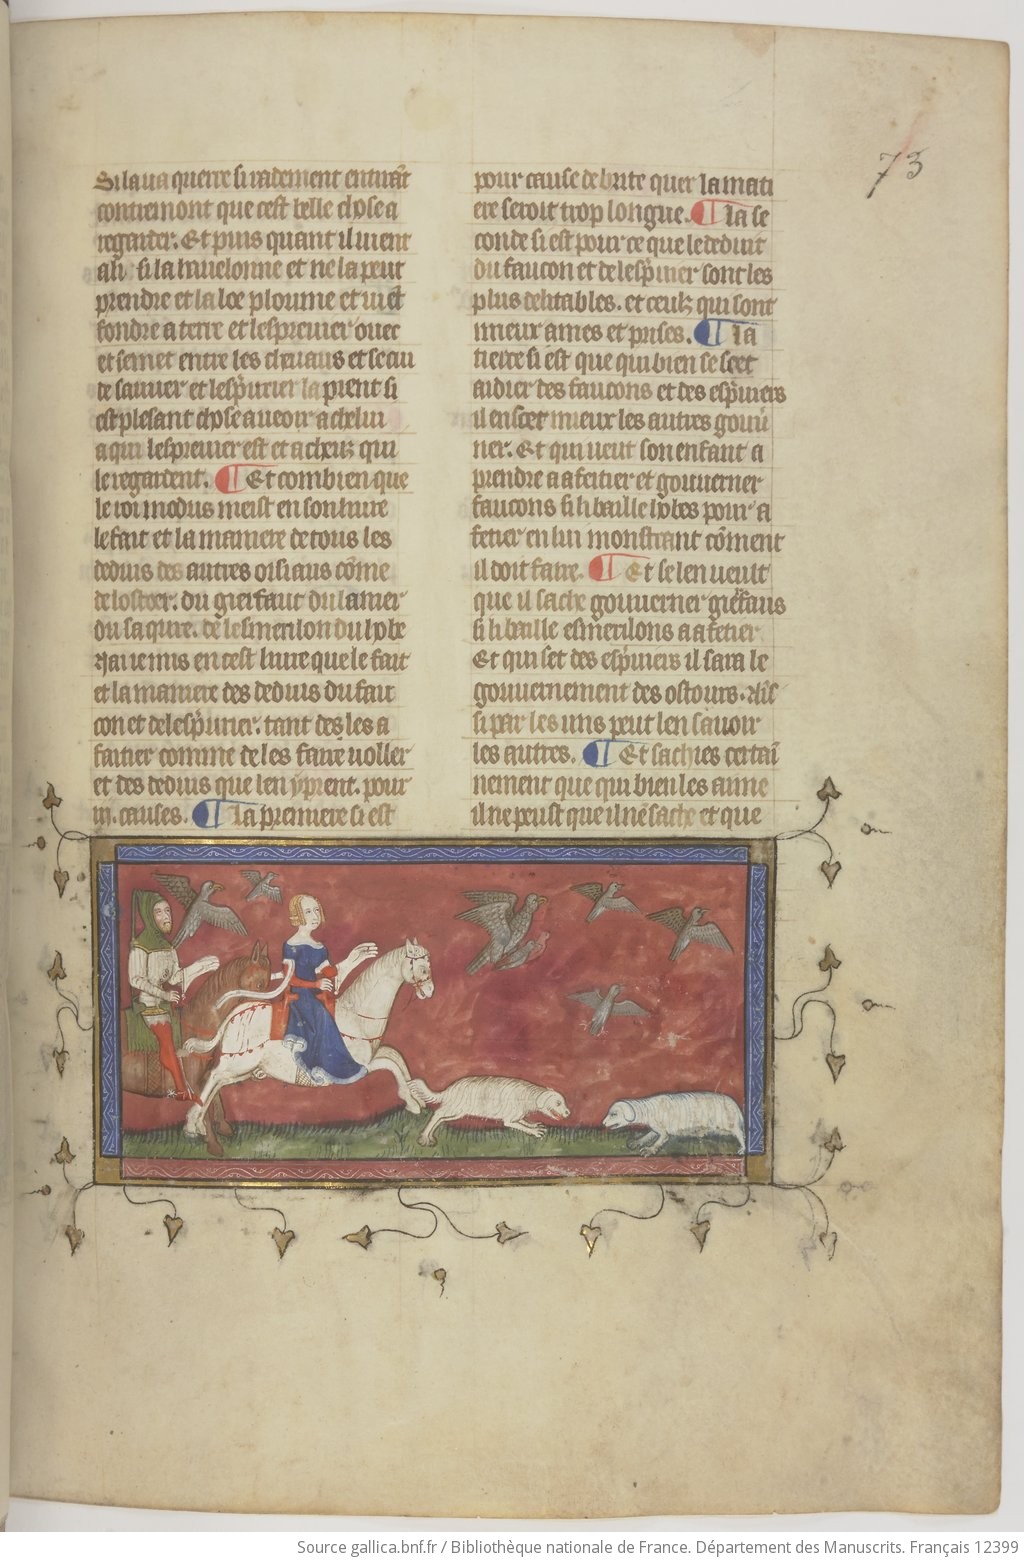 73
Si la va querre si radement en tuiãt
contremont que cest belle chose a
regarder. Et puis quant il uient
a li si la hauelonne et ne la peut
prendre et laloe ploume et uiẽt
fondre a terre et lespreuier ouec
et se met entre les cheuaus et se cui
de sauuer et lesp̃uier la prent si
est plesant chose a ueoir a chelui
a qui lespreuier est et a cheuz qui
le regardent. ¶ Et combien que
le roi modus meist en son liure
le fait et la maniere de tous les
deduis des autres oisiaus cõme
de lostoer. du gierfaut du lanier
du sa qure. de lesmerilon du hobe
Ja ue mis en cest liure que le fait
et la maniere des deduis du fau
con et de lesp̃uier. tant des les a
faitier comme de les faire uoller
et des deduis que len y prent. pour
iij. causes. ¶ La premiere si est
pour cause de brite quer la mati
ere seroit trop longue. ¶ La se
conde si est pour ce que le deduit
du faucon et de lesp̃uier sont les
plus delitables. et ceulz qui sont
mieux ames et prises. ¶ La
tierce si est que qui bien se scet
aidier des faucons et des esp̃uiers
il en scet mieux les autres gouũ
ner. Et qui ueut son enfant a
prendre a afeitier et gouuerner
faucons si li baille hobes pour a
fetier en lui monstrant cõment
il doit faire. ¶ Et se len ueult
que il sache gouuerner gierfaus
si li baille esmerilons a afetier
Et qui set des esp̃uiers il sara le
gouuernement des ostours. Aĩsi
si par les uns peut len sauoir
les autres. ¶ Et sachies certai
nement que qui bien les aime
il ne peust que il nẽ sache et que
Source gallica.bnf.fr / Bibliothèque nationale de France. Département des Manuscrits. Français 12399